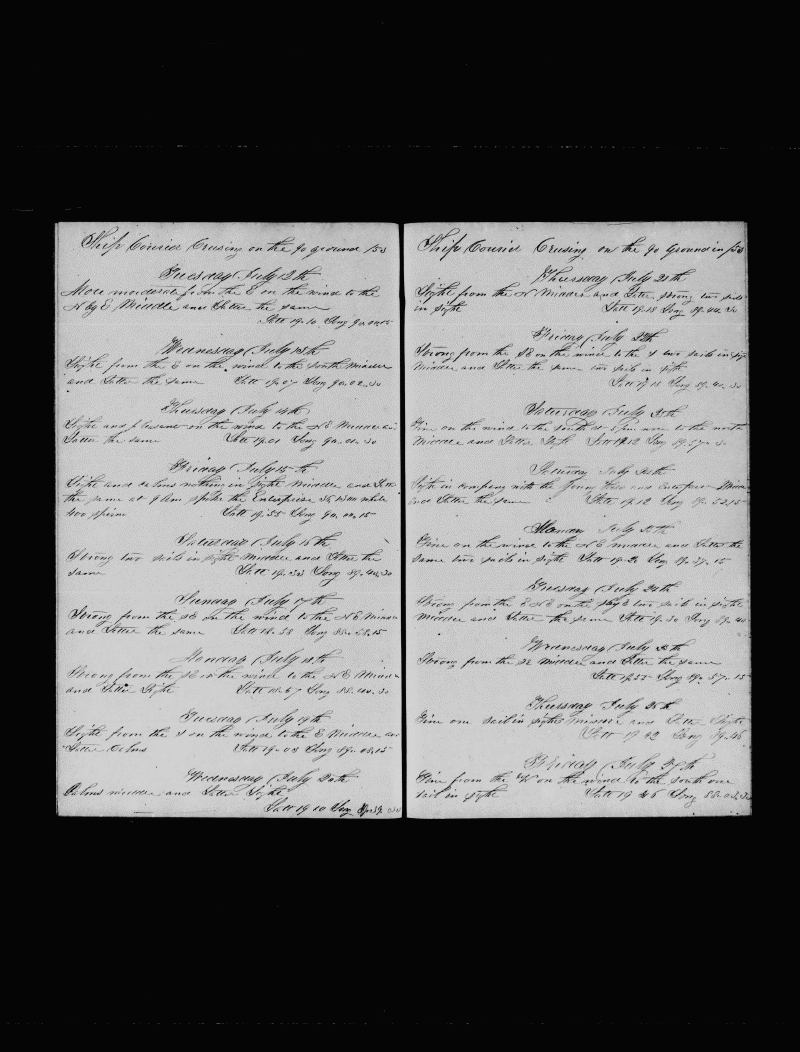 Ship Courier Crusing on the 90 ground /53
Tuesday July 12th
More moderate from the E on the wind to the
N by E Middle and Latter the same
Latt 19.10 Long 90
Wednesday July 13th
Light from the E on the wind to the South Middle
and Latter the same Latt 19.07 Long 90.02.30
Thursday July 14th
Light and pleasant on the wind to the N E Middle an
Latter the same Latt 19.01 Long 90.00.30
Friday July 15th
Light and calms nothing in Sight Middle and Latt
the same at 9 Am spoke the Enterprise
400 sperm Latt 19.55 Long 90.00.15
Saturday July 16th
Strong two sails in sight Middle and Latter the
same Latt 19 Long 89.40.30
Sunday July 17th
Strong from the SE on the wind to the N E Middle
and Latter the same Latt 18.58 Long 88.58.15
Monday July 18th
Strong from the SE on the wind to the N E Middle
and Latter Light Latt 18.57 Long 88.40.30
Tuesday July 19th
Light from the S on the wind to the E Middle an
Latter Calms Latt 19.03 Long 89.05.15
Wednesday July 20th
Calms middle and Latter Light
Latt 19 10 Long 89
Ship Courier Crusing on the 90 Ground in /53
Thursday July 21th
Light from the N Middle and Latter strong two sails
in sight Latt 19.18 Long 89.44.30
Friday July 22th
Strong from the SE on the wind to the S two sails in sig
Middle and Latter the same two sails in sight
Latt 19 11 Long 89.40.30
Saturday July
Fine on the wind to the South at 6 pm wore to the north
Middle and Latter Latt 19 12 Long 89.57
Sunday July
Light in company with the and Enterprise Middle
and Latter the same Latt 19.12 Long 89.52.15
Monday July
Fine on the wind to the N E middle and Latter the
same two sails in sight Latt 19.2 Long 89.37.15
Tuesday July
Strong from the E N E on the two sails in sight
Middle and Latter the same Latt 19.30 Long 89.40
Wednesday July
Strong from the SE Middle and Latter the same
Latt 19.55 Long 89.37.15
Thursday July
Fine one sail in sight Middle and Latter Light
Latt 19 02 Long 89.46
Friday July
Fine from the W on the wind to the South one
sail in sight Latt 19 46 Long 88